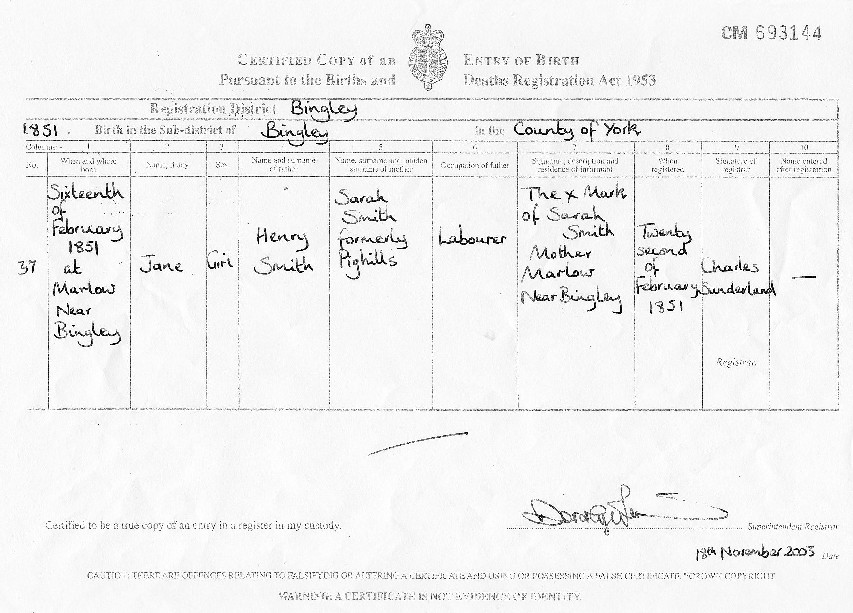 CM 693144
CERTIFIED COPY OF AN ENTRY OF BIRTH
Pursuant to the Births and Deaths Registration Act 1953
Registration District Bingley
1851. Birth in the Sub-district of Bingley in the County of York
Columns:- 1 2 3 4 5 6 7 8 9 10
No. When and where born Name, if any Sex Name and surname of father Name, surname and maiden surname of mother Occupation of father Signature, description and residence of informant When registered Signature of registrar Name entered after registration
37
Sixteenth of February 1851 at Marlow Near Bingley
Jane
Girl
Henry Smith
Sarah Smith formerly Pighills
Labourer
The x Mark of Sarah Smith Mother Marlow Near Bingley
Twenty second of February 1851
Charles Sunderland
Registrar
—
Certified to be a true copy of an entry in a register in my custody.
Superintendent Registrar
18th November 2003 Date
CAUTION: THERE ARE OFFENCES RELATING TO FALSIFYING OR ALTERING A CERTIFICATE AND USING OR POSSESSING A FALSE CERTIFICATE. ©CROWN COPYRIGHT
WARNING: A CERTIFICATE IS NOT EVIDENCE OF IDENTITY.